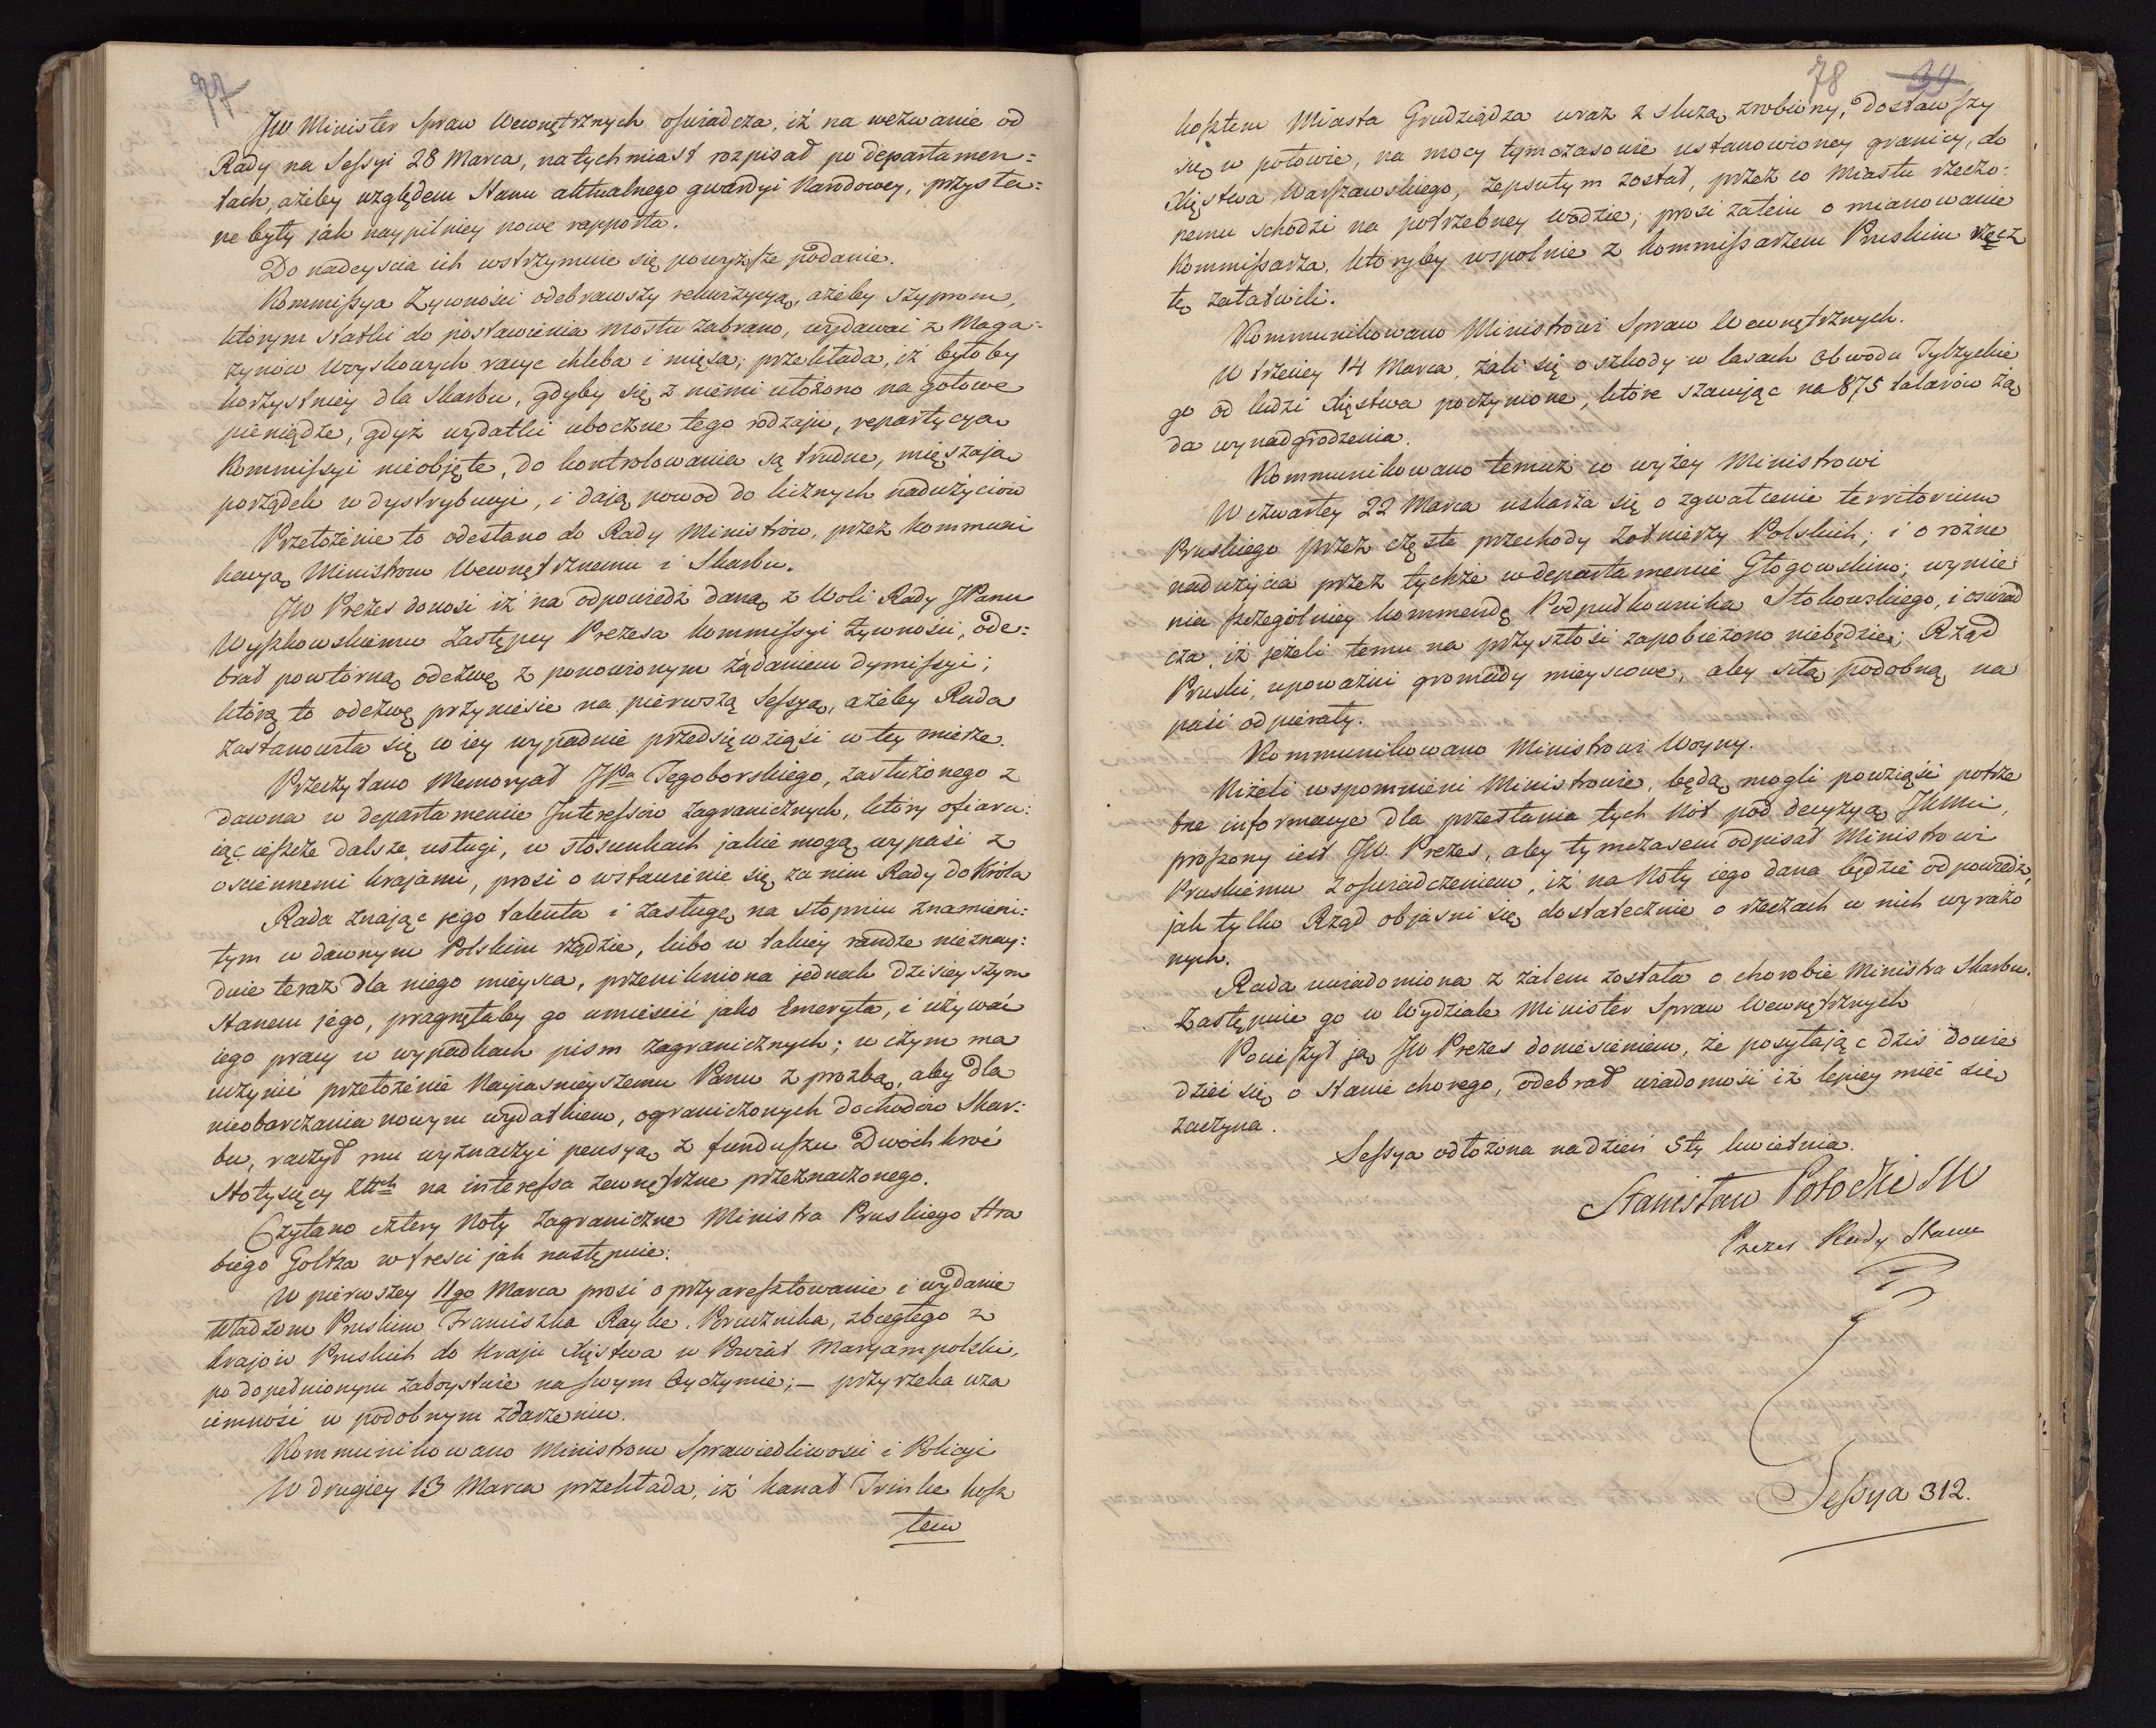 77
JW Minister Spraw Wewnętrznych oświadcza, iż na wezwanie od
Rady na Sessyi 28 Marca, natychmiast rozpisał po departamen=
tach, ażeby względem Stanu aktualnego gwardyi Narodowey, przysła=
ne były jak naypilniey nowe rapporta.
Do nadeyscia ich wstrzymuie się powyższe podanie.
Kommissya Żywności odebrawszy rekwizycyą, ażeby szyprom,
którym statki do postawienia mostu zabrano, wydawać z Maga=
zynów Woyskowych racye chleba i mięsa; przekłada, iż byłoby
korzystniey dla Skarbu, gdyby się z niemi ułożono na gotowe
pieniądze, gdyż wydatki uboczne tego rodzaju, repartycyą
Kommissyi nieobjęte, do kontrolowania są trudne, mięszają
porządek w dystrybucyi, i dają powod do licznych nadużyciów
Przełożenie to odesłano do Rady Ministrów, przez kommuni
kacyą Ministrom Wewnętrznemu i Skarbu.
JW Prezes donosi iż na odpowiedź daną z Woli Rady JPanu
Wyszkowskiemu Zastępcy Prezesa Kommissyi Żywności, ode=
brał powtórną odezwę z ponowionym żądaniem dymissyi;
którą to odezwę przyniesie na pierwszą Sessyą, ażeby Rada
zastanowiła się co iey wypadnie przedsięwziąść w tey mierze.
Przeczytano Memoryał JPa Tęgoborskiego, zasłużonego z
dawna w departamencie Interessów Zagranicznych, który ofiaru=
iąc ieszcze dalsze usługi, w stosunkach jakie mogą wypaść z
osciennemi krajami, prosi o wstawienie się za nim Rady do Króla
Rada znając jego talenta i zasługę na stopniu znamieni=
tym w dawnym Polskim rządzie, lubo w takiey randze nieznay=
duie teraz dla niego mieysca, przenikniona jednak dzisieyszym
Stanem jego, pragnęłaby go umieścić jako Emeryta, i używać
iego pracy w wypadkach pism zagranicznych; w czym ma
uczynić przełożenie Nayiasnieyszemu Panu z prozbą, aby dla
nieobarczania nowym wydatkiem, ograniczonych dochodów Skar=
bu, raczył mu wyznaczyć pensyą z funduszu Dwóchkroć
Stotysięcy Złtch na interessa zewnętrzne przeznaczonego.
Czytano cztery Noty zagraniczne Ministra Pruskiego Hra
biego Goltza w tresci jak następuie:
W pierwszey 11go Marca prosi o przyaresztowanie i wydanie
Władzom Pruskim Franciszka Rayke. Poruznika, zbiegłego z
krajów Pruskich do Kraju Xięstwa w Powiat Maryampolski,
po dopełnionym zaboystwie na swym Oyczymie; – przyrzeka wza
iemność w podobnym zdarzeniu.
Kommunikowano Ministrom Sprawiedliwości i Policyi
W drugiey 13 Marca przekłada, iż kanał Trinke kosz
tem
78 39
kosztem Miasta Grudziądza wraz z sluzą zrobiony, dostawszy
się w połowie, na mocy tymczasowie ustanowioney granicy, do
Xięstwa Warszawskiego, zepsutym został, przez co Miastu rzeczo=
nemu schodzi na potrzebney wodzie; prosi zatem o mianowanie
Kommissarza, któryby wspolnie z Kommissarzem Pruskim rzecz
tę załatwili.
Kommunikowano Ministrowi Spraw Wewnętrznych.
W trzeciey 14 Marca, żali się o szkody w lasach Obwodu Tylżyckie
go od ludzi Xięstwa poczynione, które szacując na 875 talarów żą
da wynadgrodzenia.
Kommunikowano temuż co wyżey Ministrowi
W czwartey 22 Marca uskarża się o zgwałcenie territorium
Pruskiego przez częste przechody Żołnierzy Polskich; i o rożne
nadużycia przez tychże w departamencie Głogowskim; wymie
nia szczególniey kommendę Podpułkownika Stokowskiego, i oswiad
cza, iż jeżeli temu na przyszłość zapobieżono niebędzie; Rząd
Pruski, upoważni gromady mieyscowe, aby siłą podobną na
paść odpierały.
Kommunikowano Ministrowi Woyny.
Niżeli wspomnieni Ministrowie, będą mogli powziąść potrze
bne informacye dla przesłania tych Not pod decyzyą JKMci,
proszony iest JW. Prezes, aby tymczasem odpisał Ministrowi
Pruskiemu z oswiadczeniem, iż na Noty iego dana będzie odpowiedź,
jak tylko Rząd objasni się dostatecznie o rzeczach w nich wyrażo
nych.
Rada uwiadomiona z żalem została o chorobie Ministra Skarbu.
Zastępuie go w Wydziale Minister Spraw Wewnętrznych
Pocieszył ją JW Prezes doniesieniem, że posyłając dziś dowie
dzieć się o stanie chorego, odebrał wiadomość iż lepiey mieć się
zaczyna.
Sessya odłożona na dzień 5ty kwietnia.
Stanisław Potocki SW
Prezes Rady Stanu
Sessya 312.